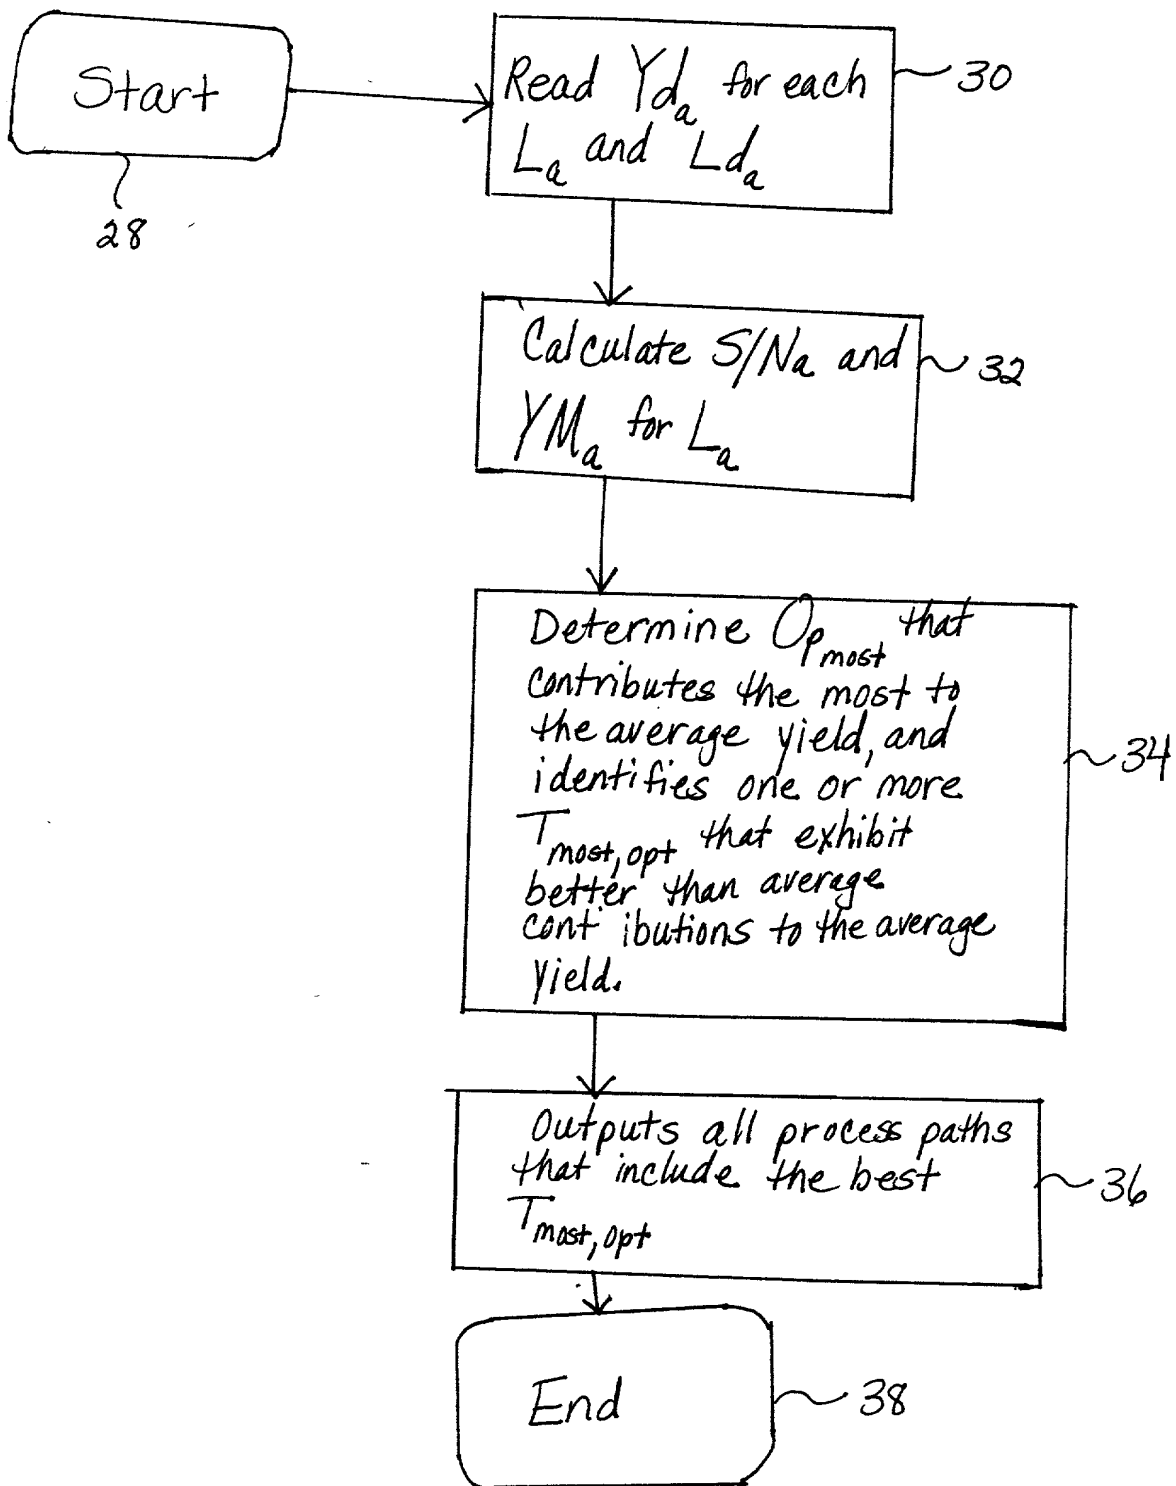 Start
28
Read Yd_a for each
L_a and Ld_a
30
Calculate S/N_a and
YM_a for L_a
32
Determine Op_most that
contributes the most to
the average yield, and
identifies one or more
T_most,opt that exhibit
better than average
cont ibutions to the average
yield.
34
Outputs all process paths
that include the best
T_most,opt
36
End
38